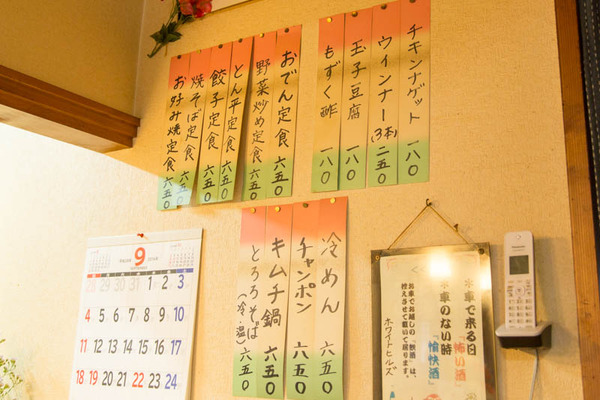 チキンナゲット 一八〇
ウィンナー(3本) 二五〇
玉子豆腐 一八〇
もずく酢 一八〇
おでん定食 六五〇
野菜炒め定食 六五〇
とん平定食 六五〇
餃子定食 六五〇
焼そば定食 六五〇
お好み焼定食 六五〇
冷めん 六五〇
チャンポン 六五〇
キムチ鍋 六五〇
とろろそば(冷・温) 六五〇
車で来る日
怖い酒
車のない時
「愉快酒」
お車でお越しの「飲酒」は、
控えさせて戴いて居ります。
ホワイトヒルズ
9
28 29 30 31 1 2 3
4 5 6 7 8 9 10
11 12 13 14 15 16 17
18 19 20 21 22 23 24
Panasonic